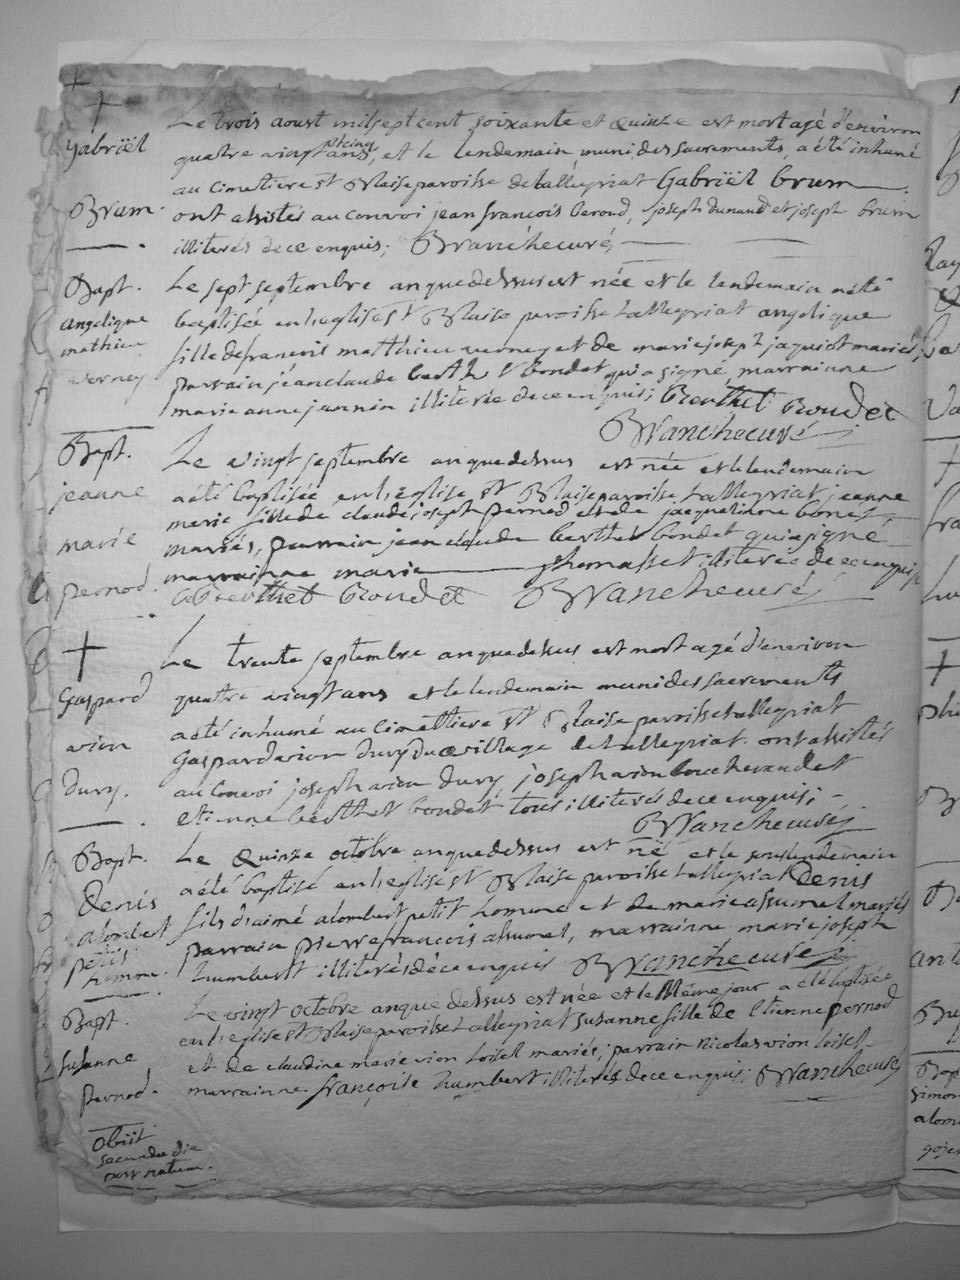 +
+
Gabriël
Brum.
Le trois aoust mil sept cent soixante et Quinze est mort agé d'environ
quatre vingt ans, et le lendemain muni des sacrements, a été inhumé
au cimetiere St Blaise paroisse de tallegriat Gabriël brum.
ont assistés au convoi jean françois beroud, joseph dunand et joseph brum
illiterés de ce enquis; Branche curé
Bapt.
angelique
mathieu
verney
Le sept septembre an que dessus est née et le lendemain a été
baptisée en l'eglise St Blaise paroisse tallegriat angelique
fille de francois matthieu verney et de marie joseph jaquiot mariés,
parrain jean claude berthet bondet qui a signé, marrainne
marie anne jannin illiterée de ce enquis; C Berthet Boudet
Branche curé
Bapt.
jeanne
marie
pernod.
Le vingt septembre an que dessus est née et le lendemain
a été baptisée en l'eglise St Blaise paroisse tallegriat jeanne
marie fille de claude joseph pernod et de jacqueline
mariés, parrain jean claude berthet bondet qui a signé
marrainne marie thomasset illiterée de ce enquise
C Berthet Boudet Branche curé
+
Gaspard
vion
Dury.
Le trente septembre an que dessus est mort agé d'environ
quatre vingt ans et le lendemain muni des sacrements
a été inhumé au cimettiere St Blaise paroisse tallegriat
Gaspard vion Dury du village de tallegriat. ont assistés
au convoi joseph vion Dury joseph vion et
etienne berthet bondet tous illiterés de ce enquis;
Branche curé
Bapt.
Denis
alombert
petit
homme.
Le Quinze octobre an que dessus est né et le surlendemain
a été baptisé en l'eglise St Blaise paroisse tallegriat Denis
fils d'aimé alombert petit homme et de marie mariés
parrain pierre francois, marrainne marie joseph
humbert illiterés de ce enquis Branche curé
Bapt.
susanne
pernod.
Le vingt octobre an que dessus est née et le Même jour a été baptisée
en l'eglise St Blaise paroisse tallegriat susanne fille de Etienne pernod
et de claudine marie vion loisel mariés; parrain nicolas vion loisel
marrainne françoise humbert illiterés de ce enquis; Branche curé
obiit
secunda die
post natum.